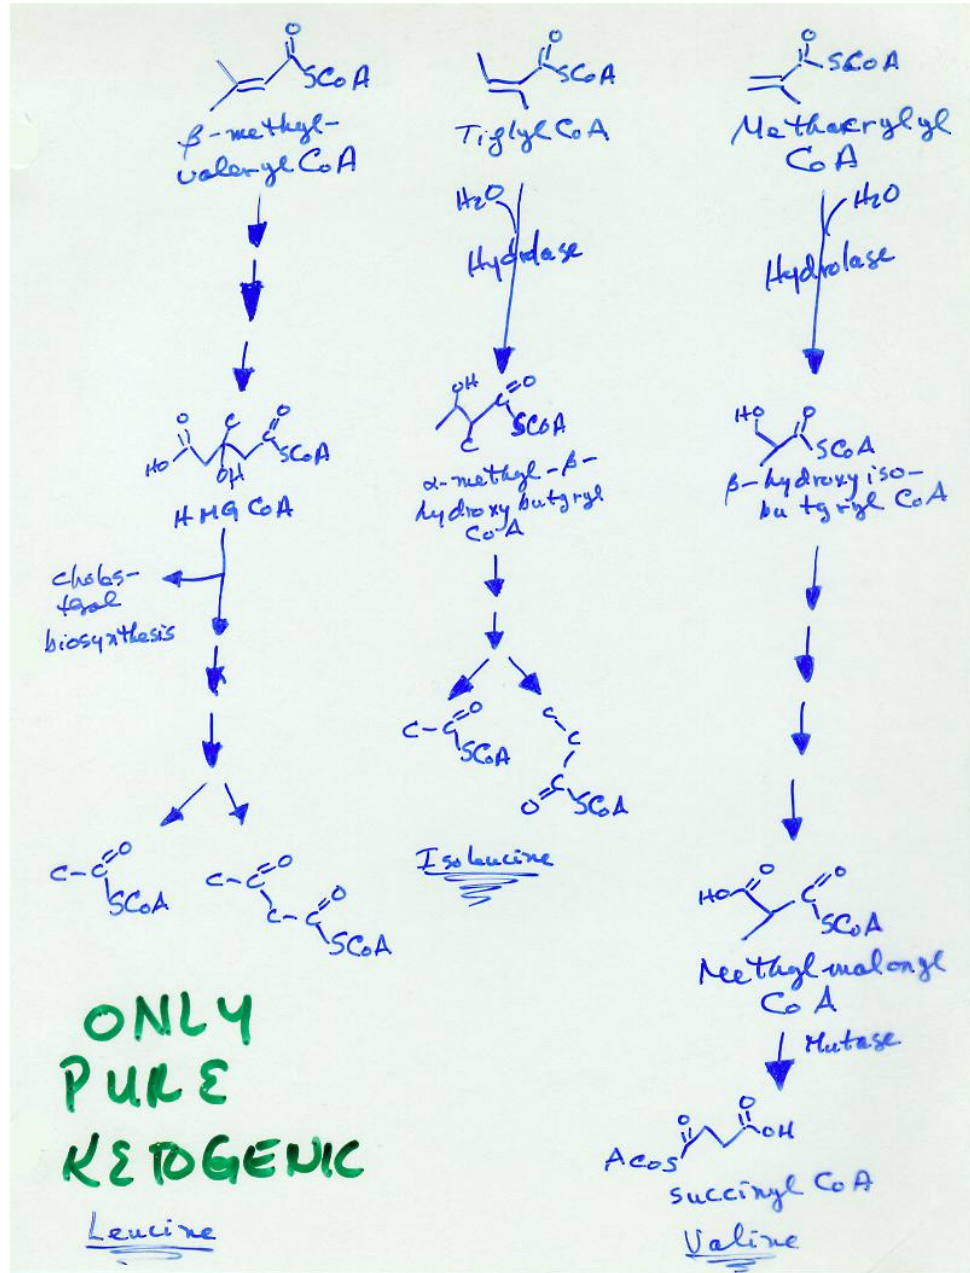 O
SCoA
β-methyl-
valeryl CoA
HO
O
C
OH
C
O
SCoA
HMG CoA
choles-
terol
biosynthesis
C-C
O
SCoA
C-C
O
C-C
O
SCoA
ONLY
PURE
KETOGENIC
Leucine
O
SCoA
Tiglyl CoA
H2O
Hydrolase
OH
C
O
SCoA
C
α-methyl-β-
hydroxy butyryl
CoA
C-C
O
SCoA
C
C
C
O
SCoA
Isoleucine
O
SCoA
Methacrylyl
CoA
H2O
Hydrolase
HO
O
SCoA
β-hydroxy iso-
butyryl CoA
HO
O
C
O
SCoA
Methylmalonyl
CoA
Mutase
O
O
OH
ACoS
succinyl CoA
Valine